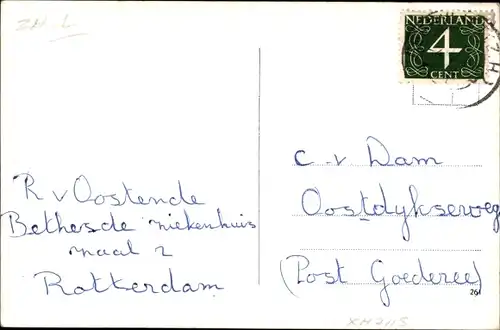 ZH L
NEDERLAND
4
CENT
R v Oostende
Bethesde ziekenhuis
zaal 2
Rotterdam
C. v. Dam
Oostdykseweg
(Post Goederee)
261